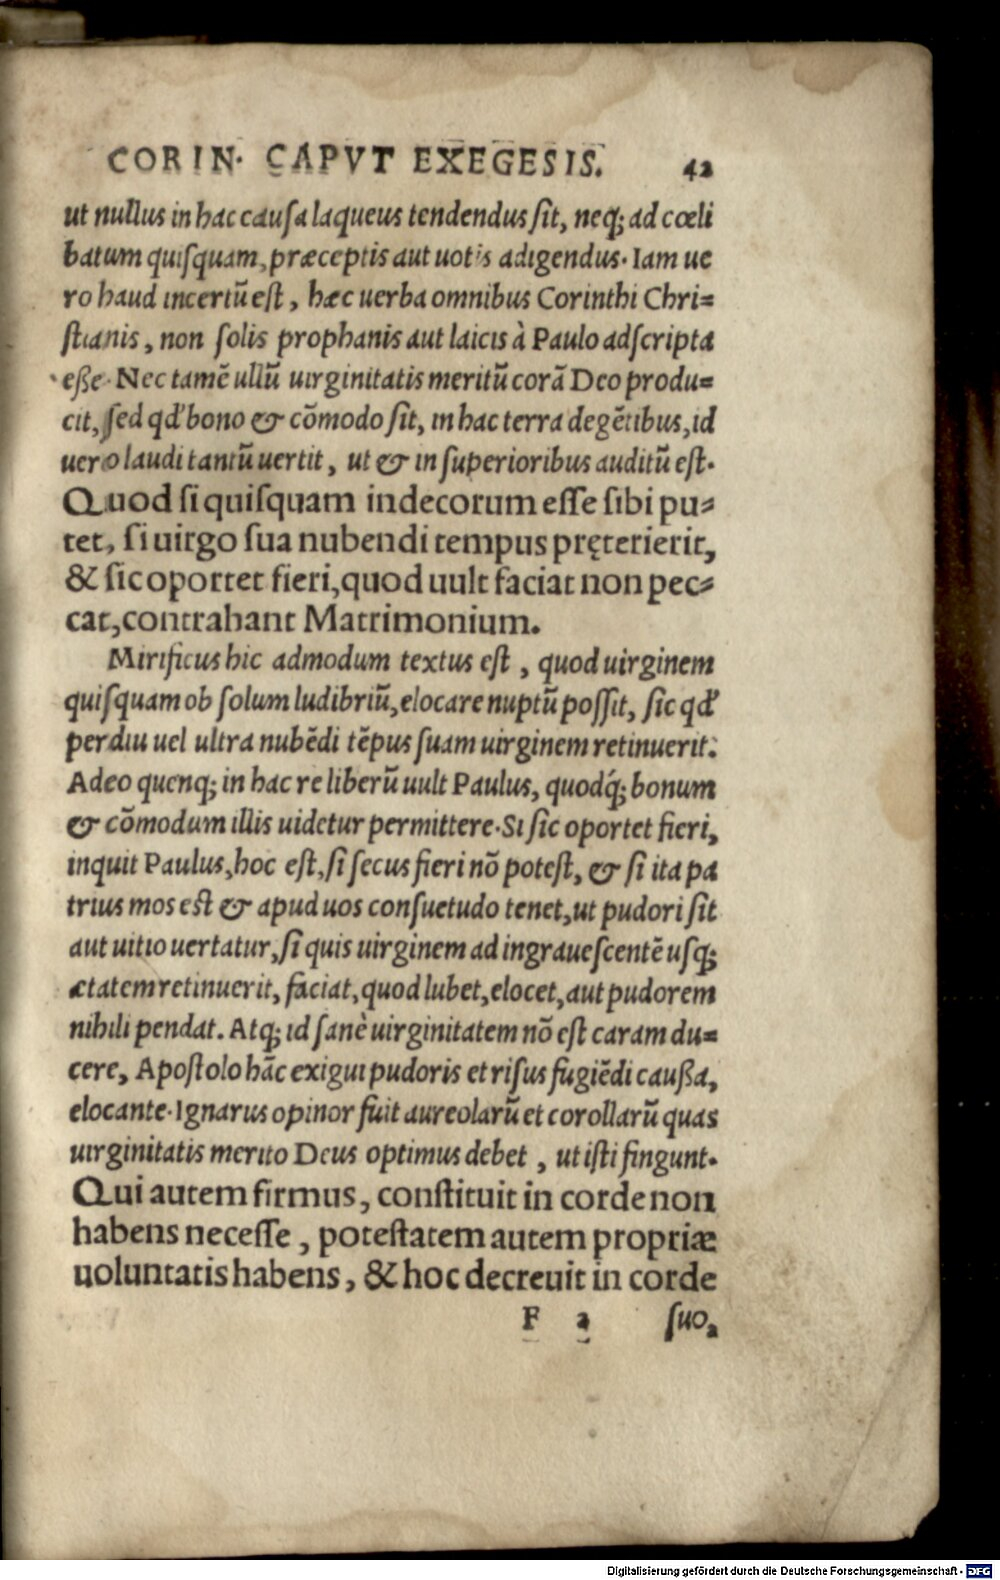 CORIN· CAPVT EXEGESIS. 42
ut nullus in hac causa laqueus tendendus sit, neq; ad cœli
batum quisquam, præceptis aut uotis adigendus· Iam ue
ro haud incertũ est, hæc uerba omnibus Corinthi Chri⸗
stianis, non solis prophanis aut laicis à Paulo adscripta
eße· Nec tamẽ ullũ uirginitatis meritũ corã Deo produ⸗
cit, sed qđ bono & cõmodo sit, in hac terra degẽtibus, id
uero laudi tantũ uertit, ut & in superioribus auditũ est·
Quod si quisquam indecorum esse sibi pu⸗
tet, si uirgo sua nubendi tempus pręterierit,
& sic oportet fieri, quod uult faciat non pec⸗
cat, contrahant Matrimonium.
Mirificus hic admodum textus est, quod uirginem
quisquam ob solum ludibriũ, elocare nuptũ possit, sic qđ
perdiu uel ultra nubẽdi tẽpus suam uirginem retinuerit:
Adeo quenq; in hac re liberũ uult Paulus, quodq́; bonum
& cõmodum illis uidetur permittere· Si sic oportet fieri,
inquit Paulus, hoc est, si secus fieri nõ potest, & si ita pa
trius mos est & apud uos consuetudo tenet, ut pudori sit
aut uitio uertatur, si quis uirginem ad ingrauescentẽ usq;
ætatem retinuerit, faciat, quod lubet, elocet, aut pudorem
nihili pendat. Atq; id sanè uirginitatem nõ est caram du⸗
cere, Apostolo hãc exigui pudoris et risus fugiẽdi caußa,
elocante· Ignarus opinor fuit aureolarũ et corollarũ quas
uirginitatis merito Deus optimus debet, ut isti fingunt·
Qui autem firmus, constituit in corde non
habens necesse, potestatem autem propriæ
uoluntatis habens, & hoc decreuit in corde
F 2 suo,
Digitalisierung gefördert durch die Deutsche Forschungsgemeinschaft - DFG